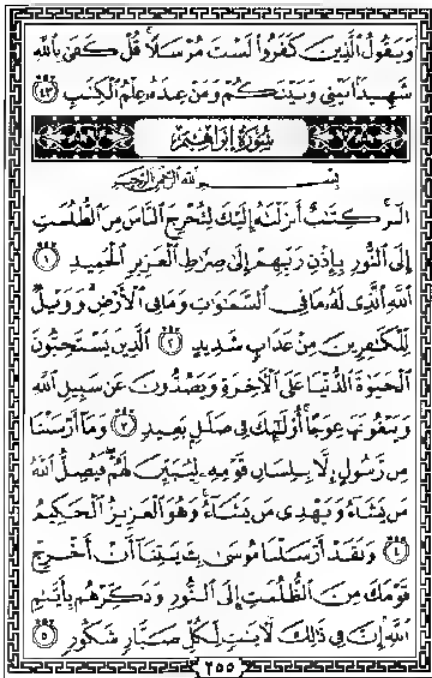 وَيَقُولُ الَّذِينَ كَفَرُوا لَسْتَ مُرْسَلًا قُلْ كَفَىٰ بِاللَّهِ
شَهِيدًا بَيْنِي وَبَيْنَكُمْ وَمَنْ عِندَهُ عِلْمُ الْكِتَٰبِ ٤٣
سُورَةُ إِبْرَاهِيمَ
بِسْمِ اللَّهِ الرَّحْمَٰنِ الرَّحِيمِ
الٓر كِتَٰبٌ أَنزَلْنَٰهُ إِلَيْكَ لِتُخْرِجَ النَّاسَ مِنَ الظُّلُمَٰتِ
إِلَى النُّورِ بِإِذْنِ رَبِّهِمْ إِلَىٰ صِرَٰطِ الْعَزِيزِ الْحَمِيدِ ١
اللَّهِ الَّذِي لَهُ مَا فِي السَّمَٰوَٰتِ وَمَا فِي الْأَرْضِ وَوَيْلٌ
لِّلْكَٰفِرِينَ مِنْ عَذَابٍ شَدِيدٍ ٢ الَّذِينَ يَسْتَحِبُّونَ
الْحَيَوٰةَ الدُّنْيَا عَلَى الْآخِرَةِ وَيَصُدُّونَ عَن سَبِيلِ اللَّهِ
وَيَبْغُونَهَا عِوَجًا أُولَٰئِكَ فِي ضَلَٰلٍ بَعِيدٍ ٣ وَمَا أَرْسَلْنَا
مِن رَّسُولٍ إِلَّا بِلِسَانِ قَوْمِهِ لِيُبَيِّنَ لَهُمْ فَيُضِلُّ اللَّهُ
مَن يَشَاءُ وَيَهْدِي مَن يَشَاءُ وَهُوَ الْعَزِيزُ الْحَكِيمُ
٤ وَلَقَدْ أَرْسَلْنَا مُوسَىٰ بِـَٔايَٰتِنَا أَنْ أَخْرِجْ
قَوْمَكَ مِنَ الظُّلُمَٰتِ إِلَى النُّورِ وَذَكِّرْهُم بِأَيَّىٰمِ
اللَّهِ إِنَّ فِي ذَٰلِكَ لَآيَٰتٍ لِّكُلِّ صَبَّارٍ شَكُورٍ ٥
٢٥٥